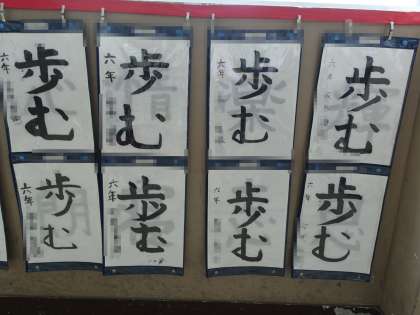 歩む
六年
歩む
六年
歩む
六年
歩む
六年
歩む
六年
歩む
六年
歩む
六年
歩む
六